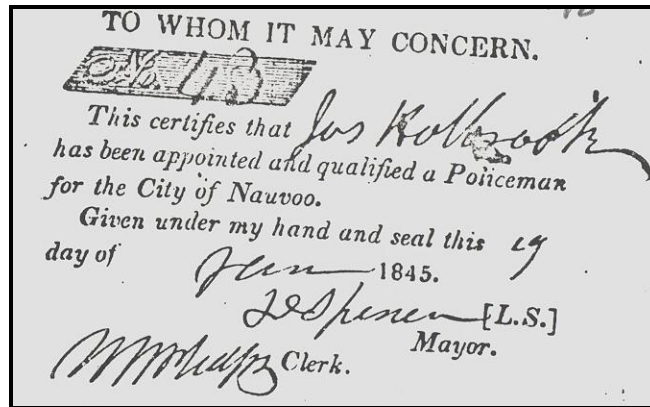 TO WHOM IT MAY CONCERN.
No. 43
This certifies that Jos Holbrook
has been appointed and qualified a Policeman
for the City of Nauvoo.
Given under my hand and seal this 19
day of Jan 1845.
[L.S.]
Mayor.
Clerk.